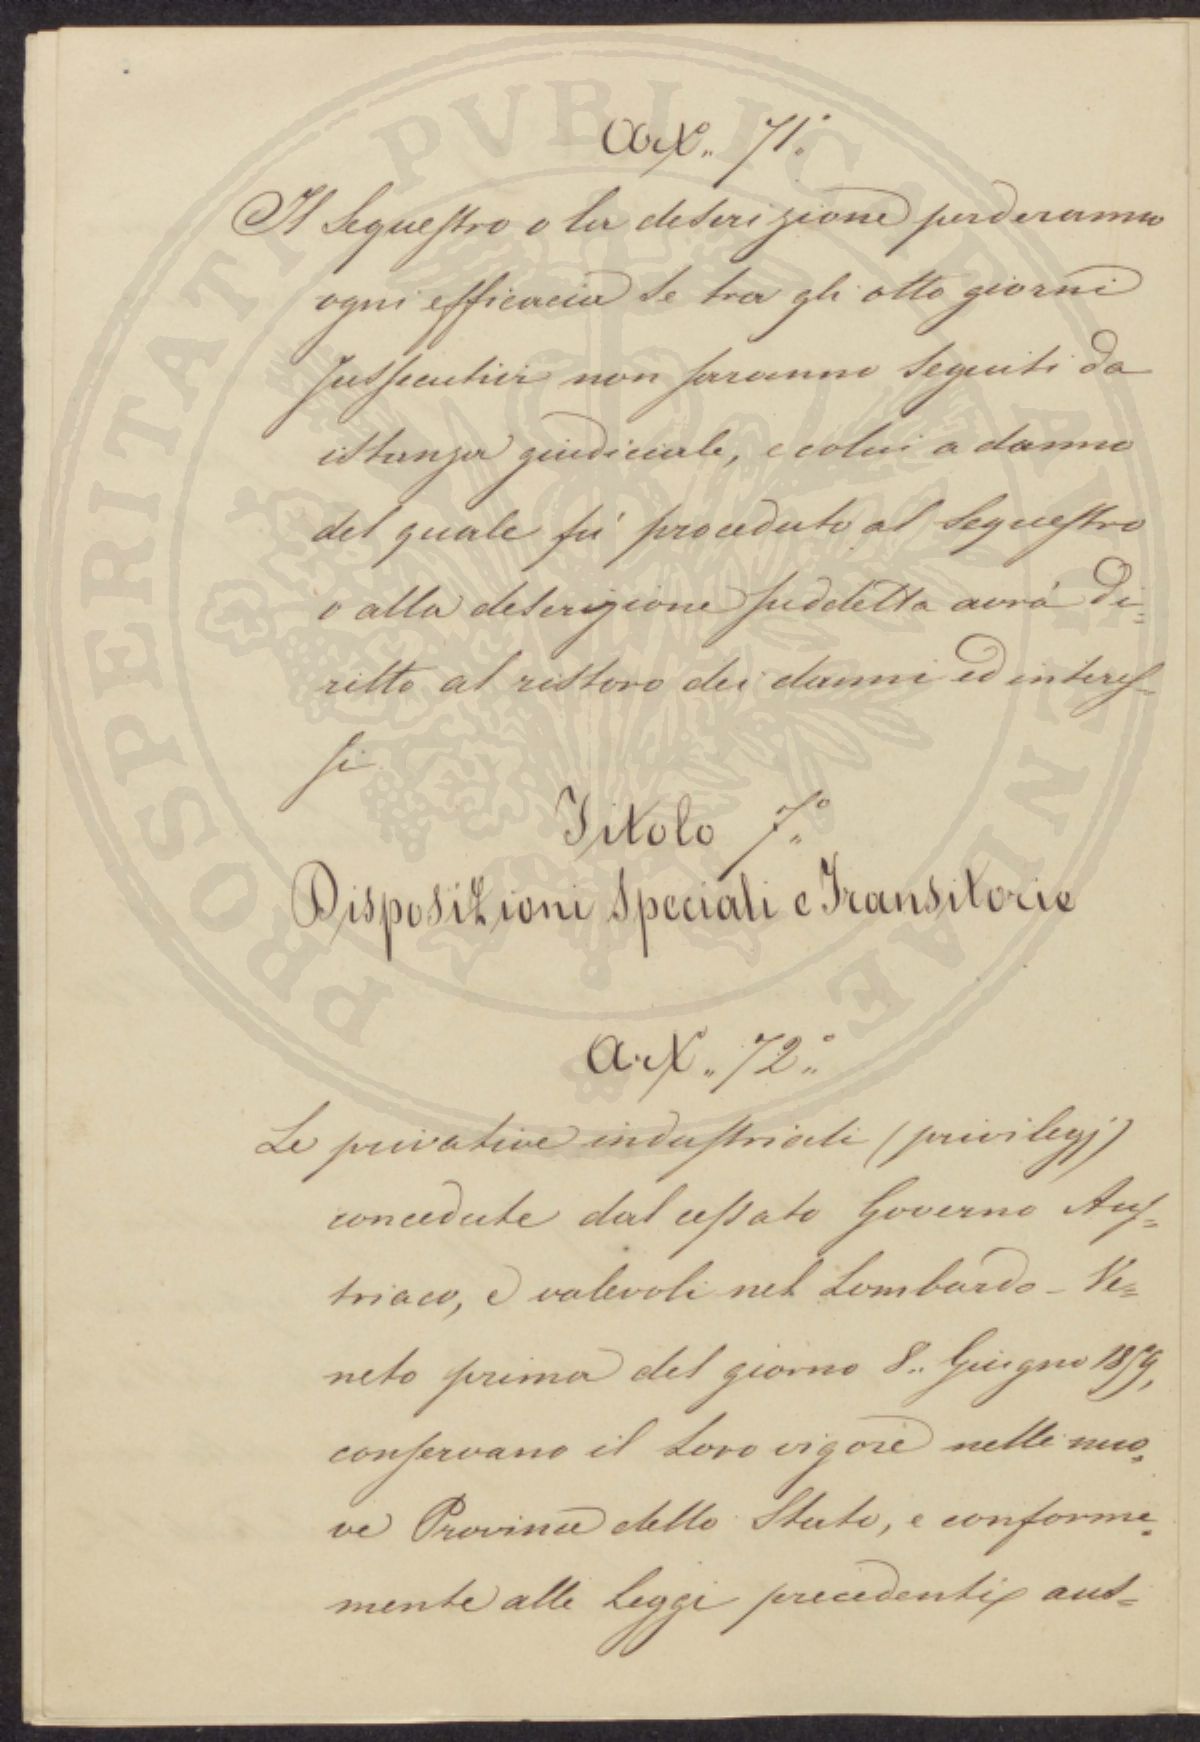 PROSPERITATI PVBLICAE AVGENDAE
Art. 71.°
Il sequestro o la descrizione perderanno
ogni efficacia se tra gli otto giorni
susseculivi non saranno seguiti da
istanza giudiciale, e colui a danno
del quale fù proceduto al sequestro
o alla descrizione suddetta avrà di=
ritto al ristoro dei danni ed interes=
si
Titolo 7.°
Disposizioni Speciali e Transitorie
Art. 72.°
Le privative industriali (privilegj)
concedute dal cessato Governo Aus=
triaco, e valevoli nel Lombardo-Ve=
neto prima del giorno 8. Giugno 1859,
conservano il loro vigore nelle nuo=
ve Provincie dello Stato, e conforme=
mente alle leggi precedenti aus=